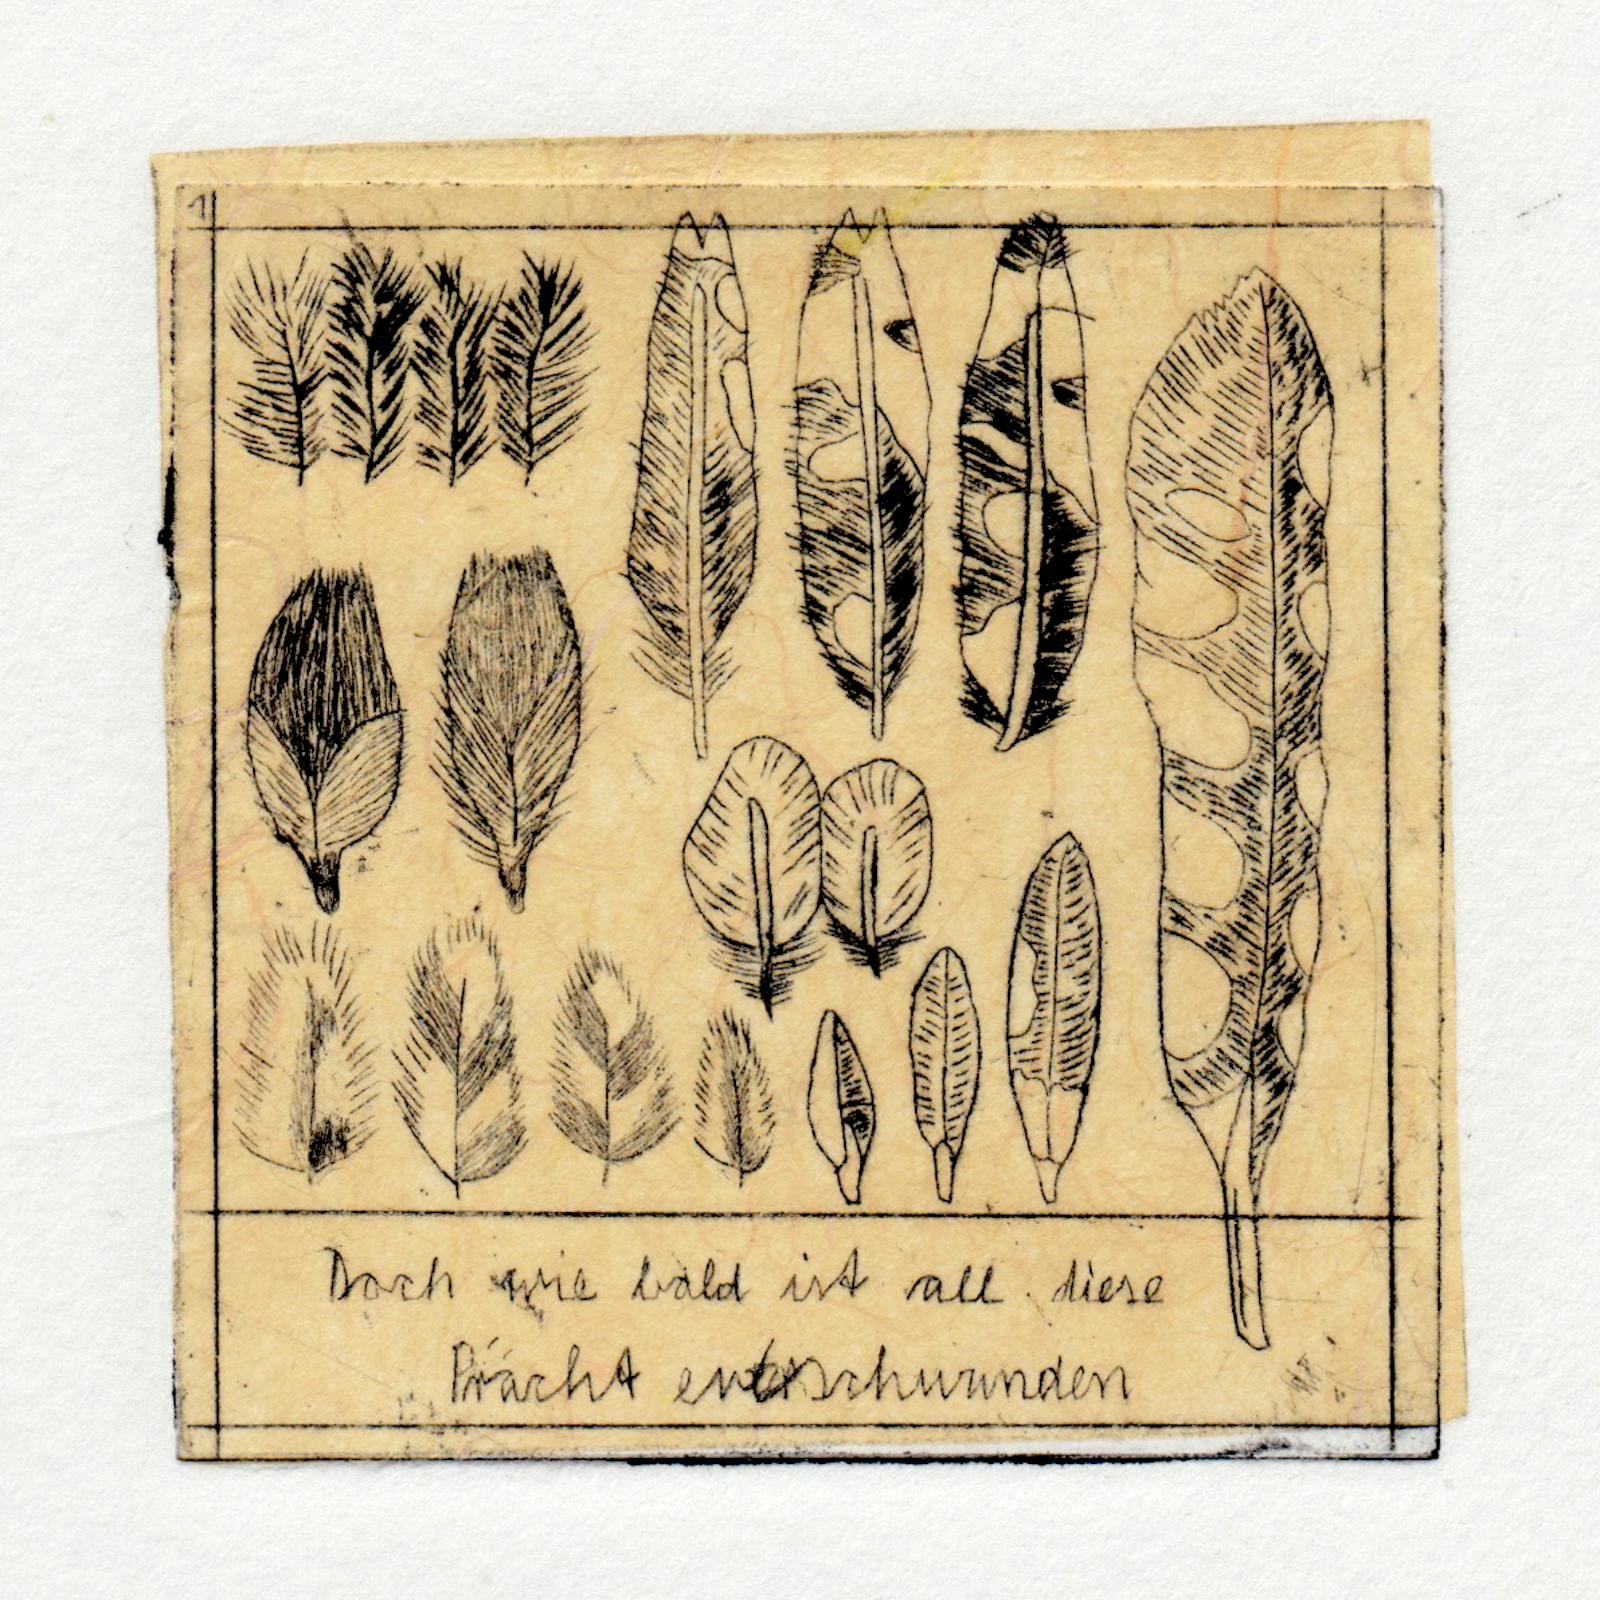 1
Doch wie bald ist all diese
Pracht entschwunden